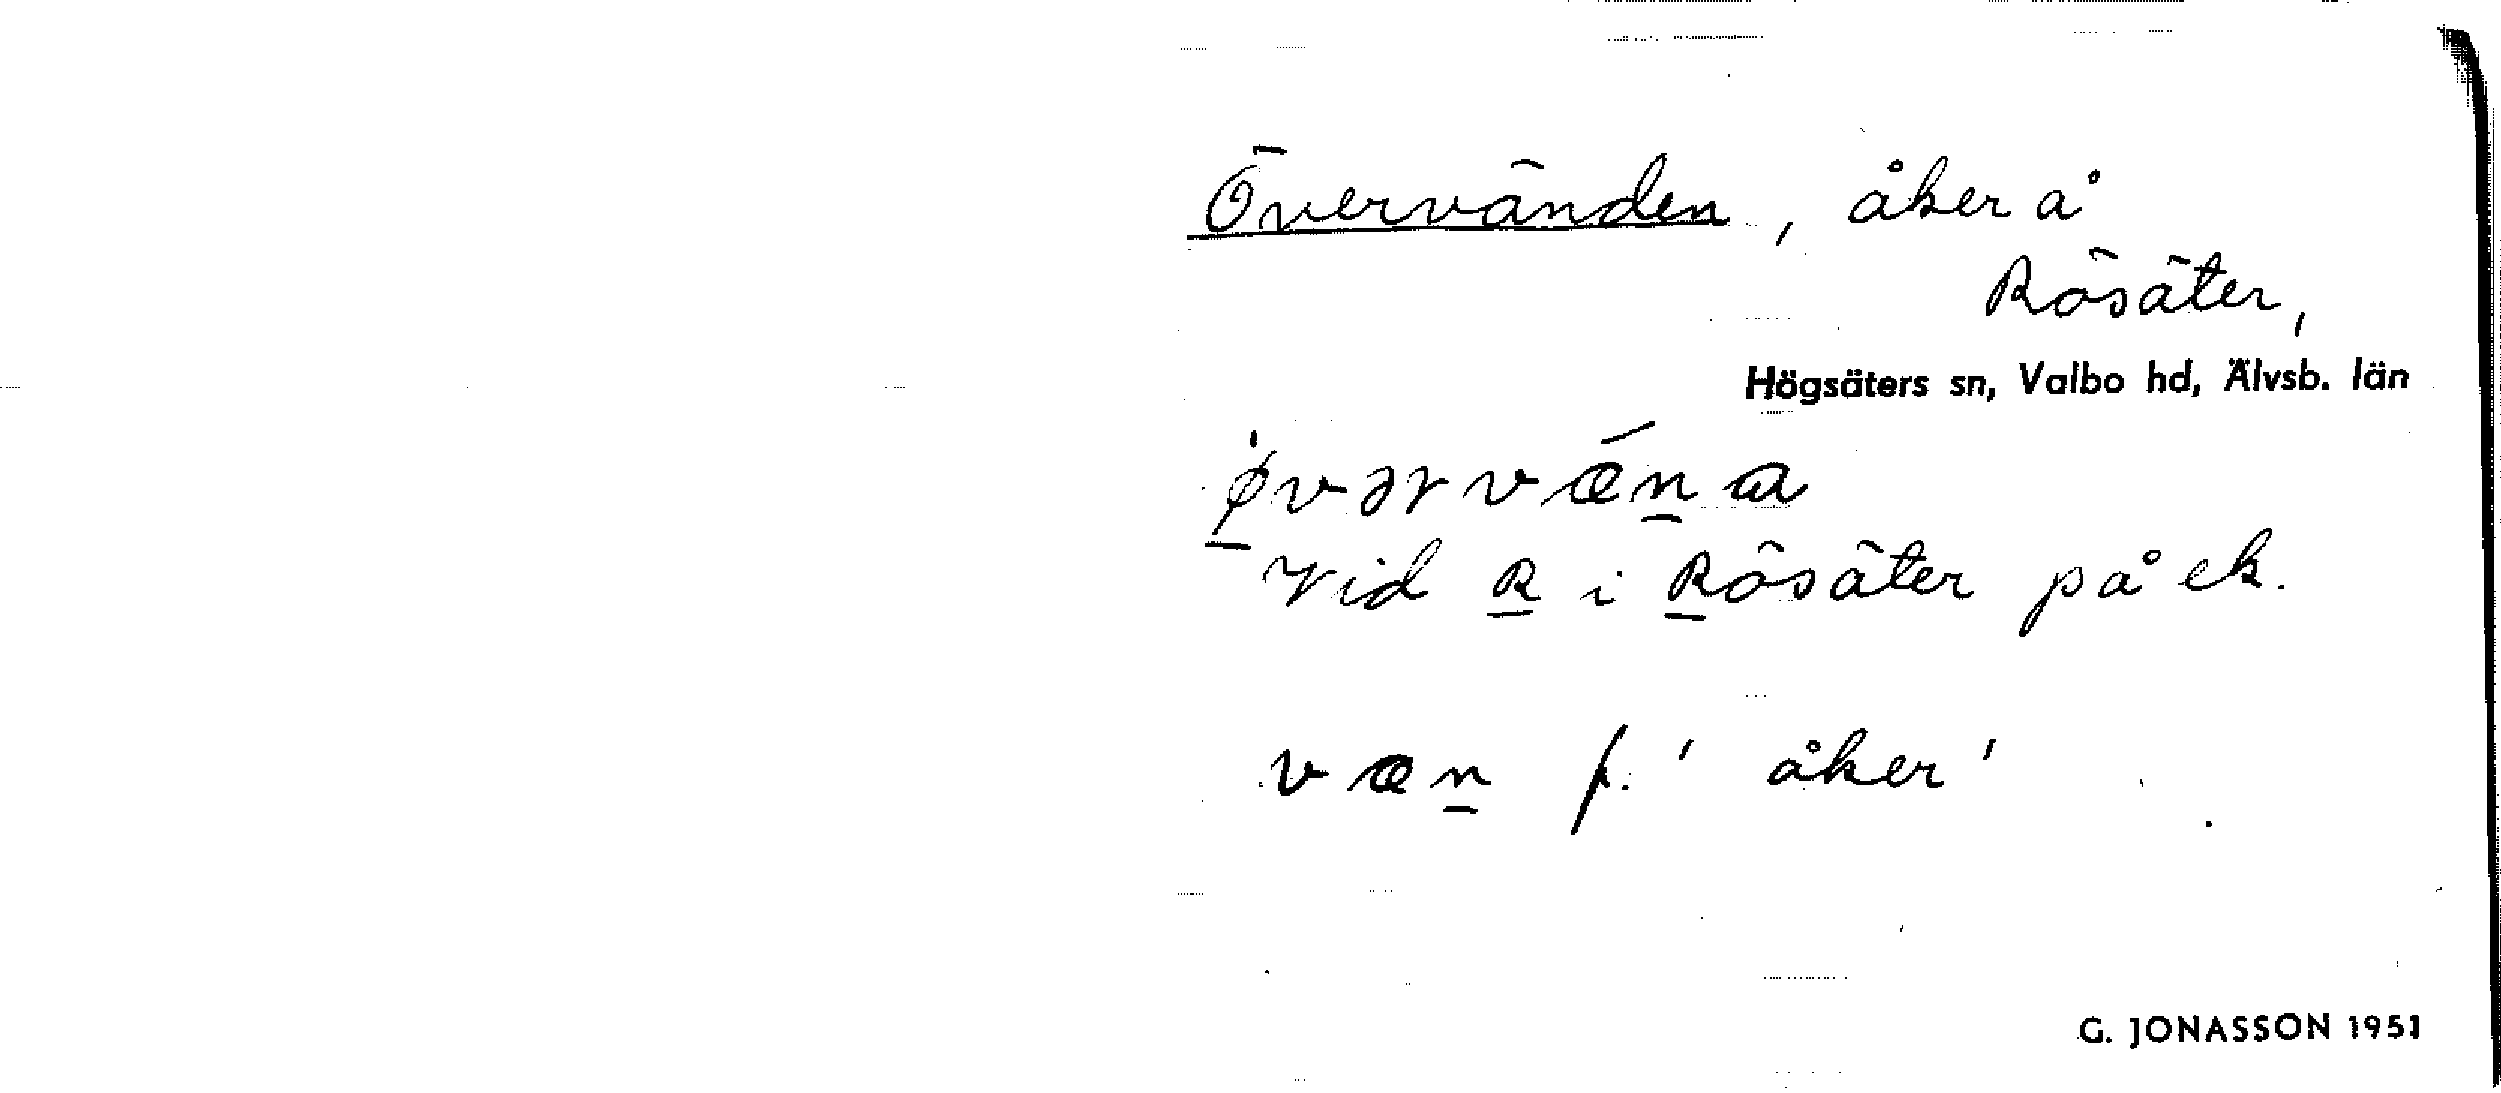 Övervänden, åker å
Rösäter,
Högsäters sn, Valbo hd, Älvsb. län
ø̀vərvǽna
Vid R i Rösäter på ek.
væn f. ' åker '
G. JONASSON 1951